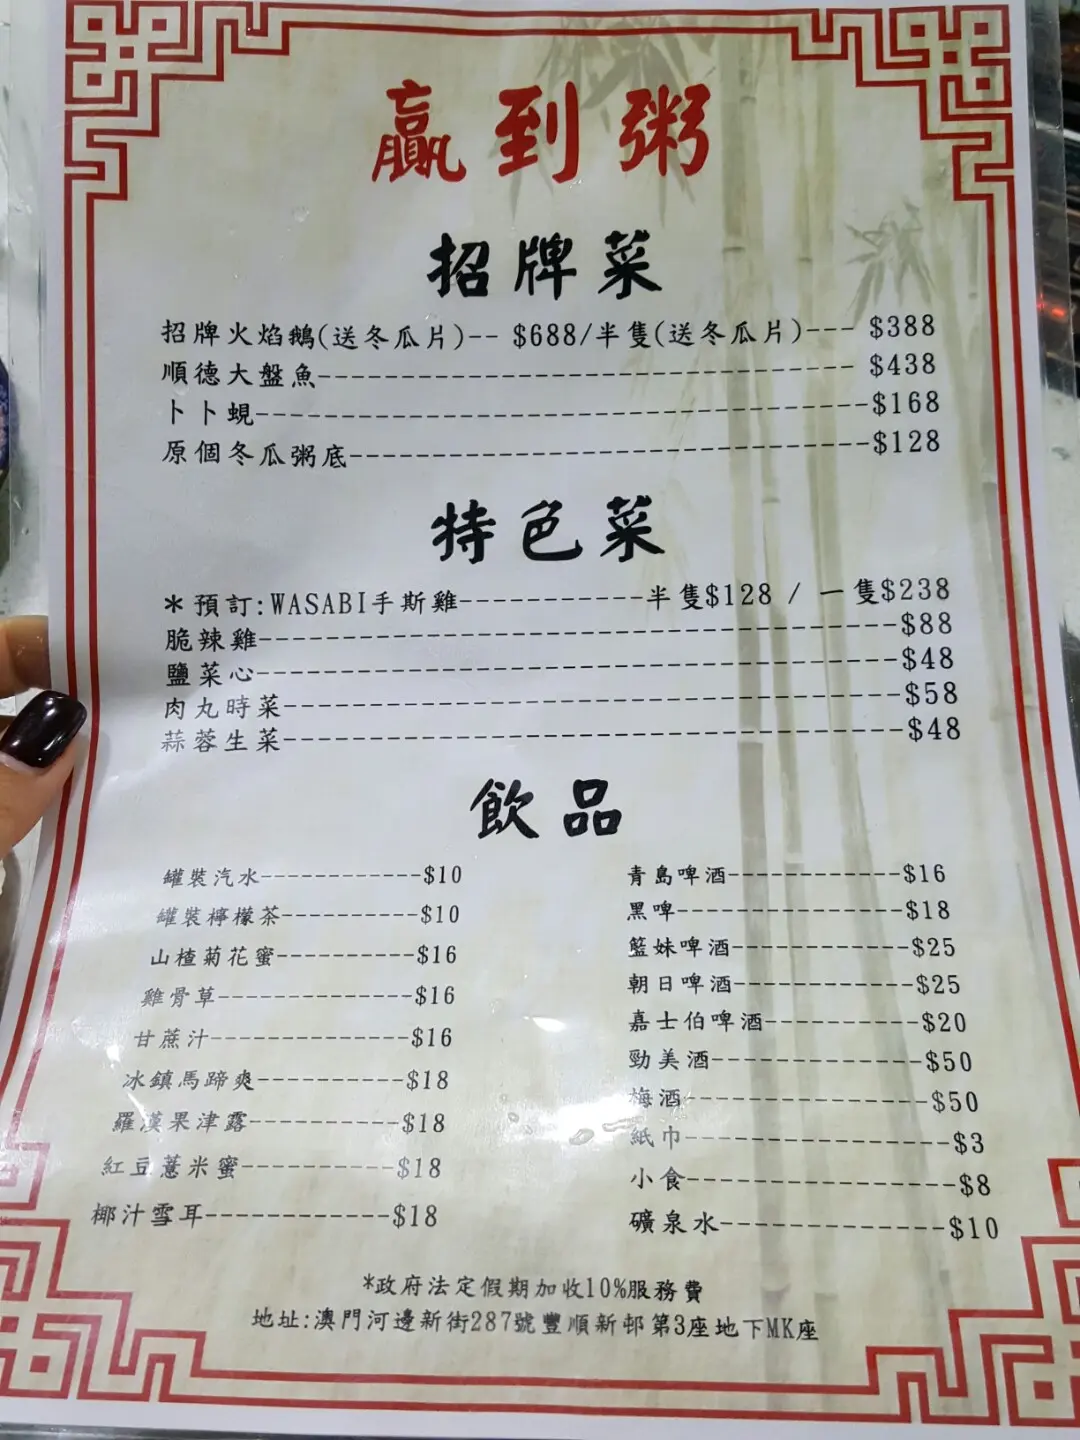 贏到粥
招牌菜
招牌火焰鵝(送冬瓜片)-- $688/半隻(送冬瓜片)--- $388
順德大盤魚------------------------------- $438
卜卜蜆------------------------------------$168
原個冬瓜粥底------------------------------$128
特色菜
*預訂:WASABI手斯雞-----------半隻$128 / 一隻$238
脆辣雞-------------------------------------$88
鹽菜心-------------------------------------$48
肉丸時菜-----------------------------------$58
蒜蓉生菜-----------------------------------$48
飲品
罐裝汽水-----------$10
罐裝檸檬茶----------$10
山楂菊花蜜----------$16
雞骨草--------------$16
甘蔗汁--------------$16
冰鎮馬蹄爽----------$18
羅漢果津露----------$18
紅豆薏米蜜----------$18
椰汁雪耳------------$18
青島啤酒-----------$16
黑啤---------------$18
籃妹啤酒-----------$25
朝日啤酒-----------$25
嘉士伯啤酒---------$20
勁美酒-------------$50
梅酒---------------$50
紙巾----------------$3
小食----------------$8
礦泉水-------------$10
*政府法定假期加收10%服務費
地址:澳門河邊新街287號豐順新邨第3座地下MK座